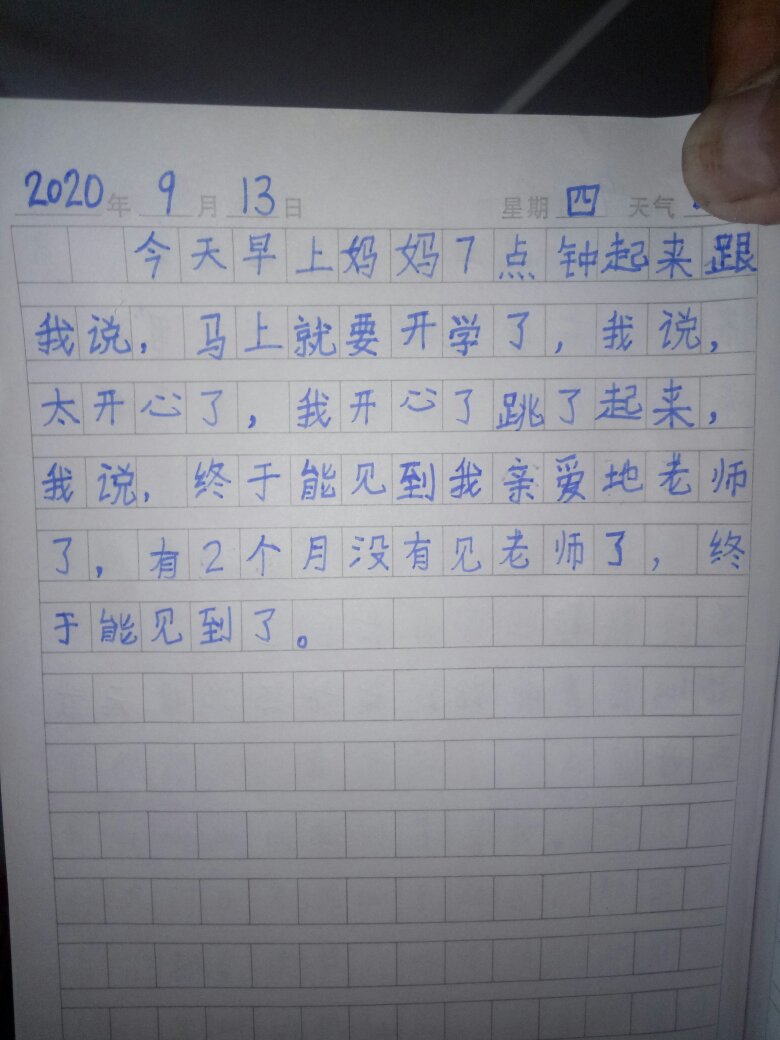 2020年 9月 13日 星期四 天气
今天早上妈妈7点钟起来跟
我说，马上就要开学了，我说，
太开心了，我开心了跳了起来，
我说，终于能见到我亲爱地老师
了，有2个月没有见老师了，终
于能见到了。